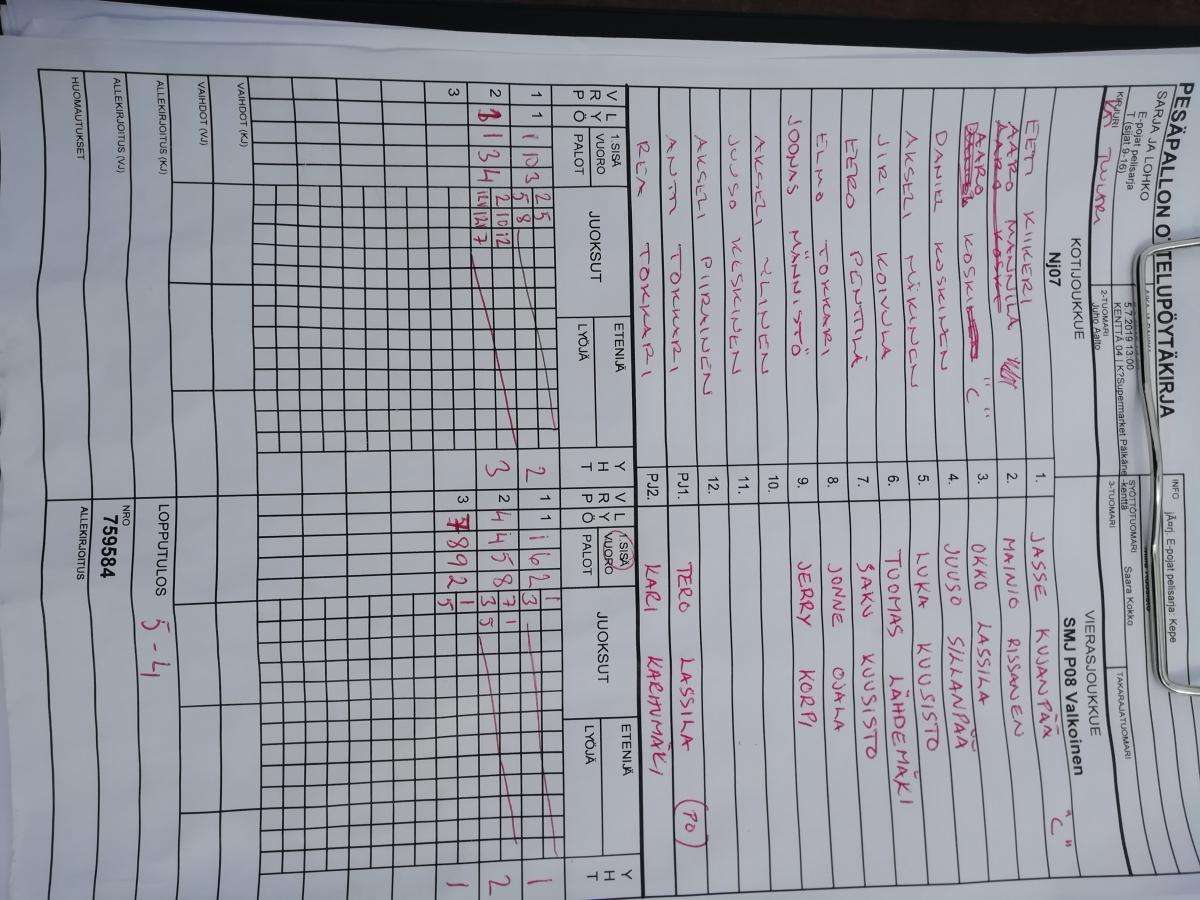 PESÄPALLON OTTELUPÖYTÄKIRJA
SARJA JA LOHKO
E-pojat pelisarja
T (sijat 9-16)
5.7.2019 13:00
KENTTÄ 04 | K?Supermarket Pälkäne -kenttä
INFO
jÃ¤rj. E-pojat pelisarja: Kepe
KIRJURI
TUULARI
2-TUOMARI
Juho Aalto
SYÖTTÖTUOMARI
Saara Kokko
3-TUOMARI
TAKARAJATUOMARI
KOTIJOUKKUE
Nj07
VIERASJOUKKUE
SMJ P08 Valkoinen
EETI KIIKERI 1. JASSE KUJANPÄÄ "C"
AARO MANNILA 2. MAINIO RISSANEN
AARO KOSKI "C" 3. OKKO LASSILA
DANIEL KOSKINEN 4. JUUSO SILLANPÄÄ
AKSELI MÄKINEN 5. LUKA KUUSISTO
JIRI KOIVULA 6. TUOMAS LÄHDEMÄKI
EERO PENTTILÄ 7. SAKU KUUSISTO
ELMO TOKKARI 8. JONNE OJALA
JOONAS MÄNNISTÖ 9. JERRY KORPI
AKSELI YLINEN 10.
JUUSO KESKINEN 11.
AKSELI PIIRAINEN 12.
ANTTI TOKKARI PJ1. TERO LASSILA (PO)
REA TOKKARI PJ2. KARI KARHUMÄKI
VRP LYÖ 1.SISÄ VUORO PALOT JUOKSUT ETENIJÄ LYÖJÄ YHT
VRP LYÖ 1.SISÄ VUORO PALOT JUOKSUT ETENIJÄ LYÖJÄ YHT
1 1 1 10 3 2 5 2
5 8
2 1 3 4 2 10 12 3
12 7
3
1 1 1 6 2 3 1 1
2 4 4 5 8 7 1 2
3 5
3 7 8 9 2 1 1
5
VAIHDOT (KJ)
VAIHDOT (VJ)
ALLEKIRJOITUS (KJ)
LOPPUTULOS 5-4
ALLEKIRJOITUS (VJ)
NRO
759584
HUOMAUTUKSET
ALLEKIRJOITUS